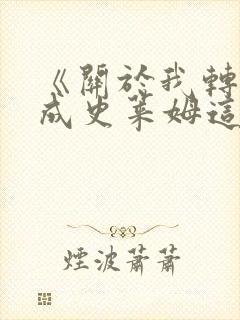 《關於我轉
成史萊姆這
煙波蕭蕭